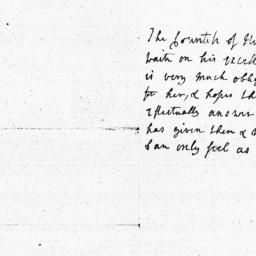 The Countess of Hu
wait on his Excell
is very much oblig
for her, & hopes th
effectually answer
has given them & 
can only feel as